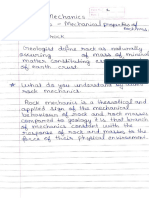 Mechanics
- Mechanical properties of
rockmass.
ROCK
Geologist define rock as naturally
occuring of mass of mineral
matter constituting essential part
of earth crust
* What do you understand by term
rock mechanics.
Rock mechanics is a theoretical and
applied sign of the mechanical
behaviour of rock and rock masses
compared to geology it is that branch
of mechanics concern with the
response of rock and masses to the
force of their physical environment.